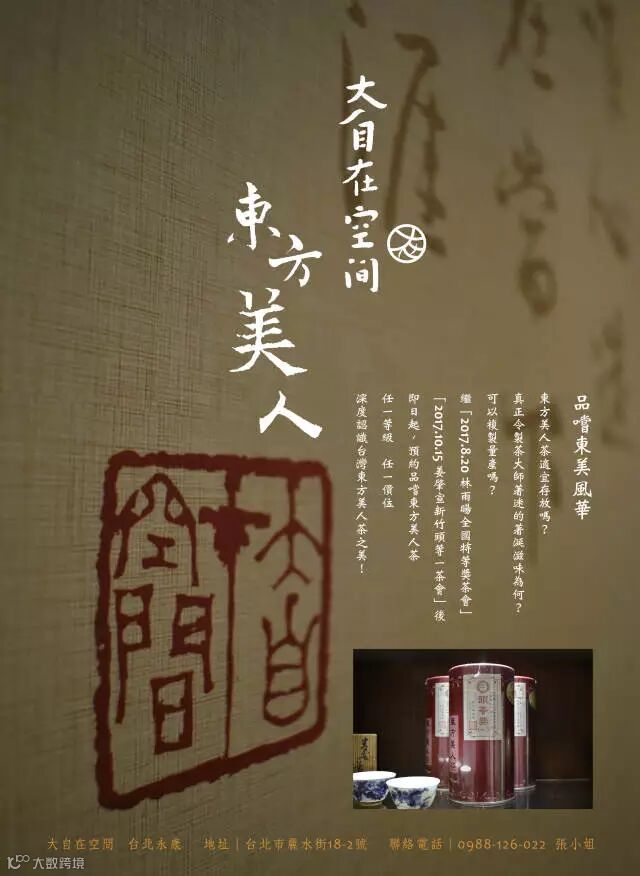 大自在空间
東方美人
品嚐東美風華
東方美人茶適宜存放嗎？
真正令製茶大師著迷的著涎滋味為何？
可以複製量產嗎？
繼「2017.8.20 林雨暘全國特等獎茶會」
「2017.10.15 姜肇宣新竹頭等一茶會」後
即日起，預約品嚐東方美人茶
任一等級　任一價位
深度認識台灣東方美人茶之美！
大自在
空間
頭等獎
東方美人茶
大自在空間　台北永康　地址｜台北市麗水街18-2號　聯絡電話｜0988-126-022 張小姐
大数跨境